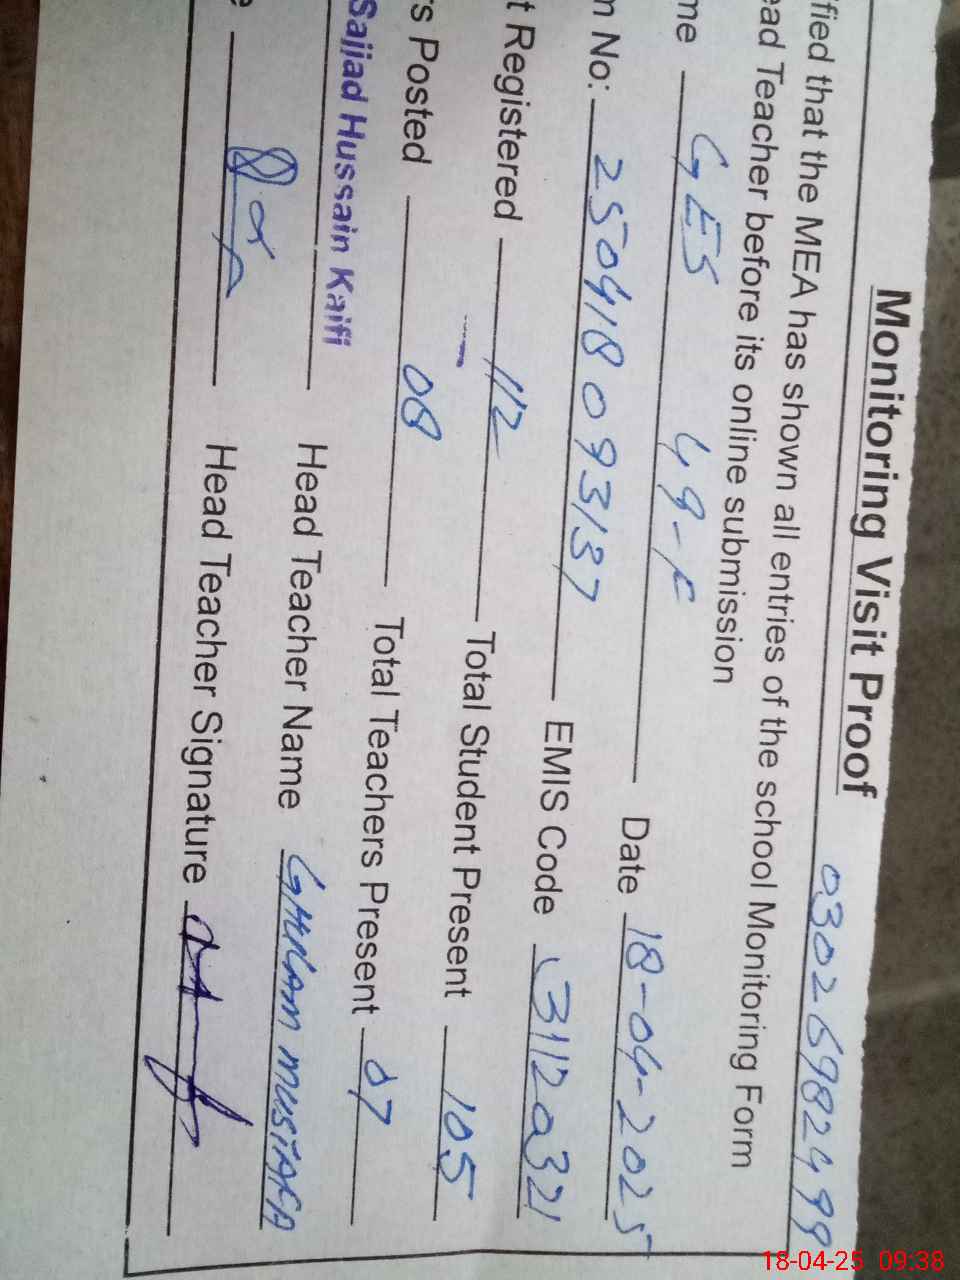 Monitoring Visit Proof 03026982499
ified that the MEA has shown all entries of the school Monitoring Form
ead Teacher before its online submission
me GES 49-F Date 18-04-2025
n No: 250418093137 EMIS Code 31120321
t Registered 112 Total Student Present 105
rs Posted 08 Total Teachers Present 07
Sajjad Hussain Kaifi Head Teacher Name GHULAM MUSTAFA
e Head Teacher Signature
18-04-25 09:38